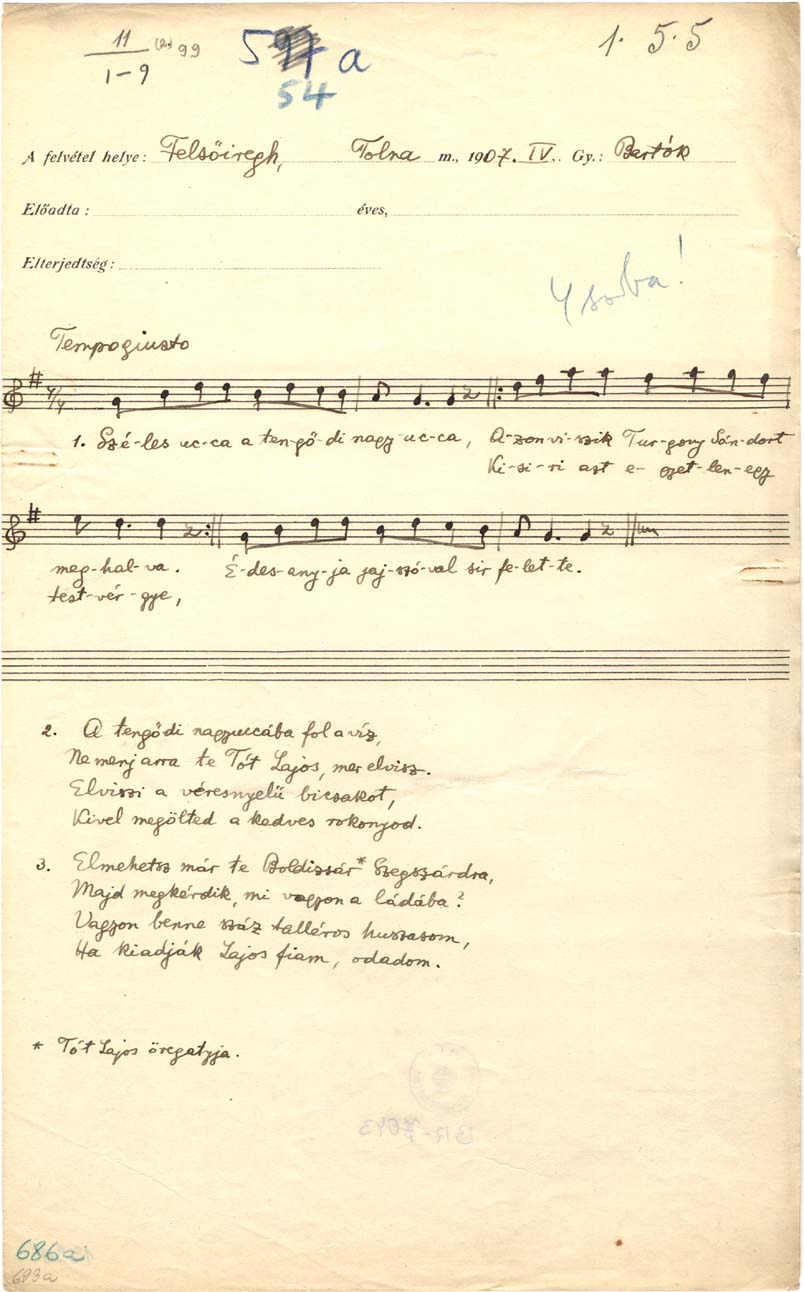 11 (2.) 99
1-9
54 a
1. 5. 5
A felvétel helye: Felsőiregh, Tolna m., 1907. IV. Gy.: Bartók
Előadta: éves,
Elterjedtség:
4 sorba!
Tempo giusto
4/4
1. Szé-les uc-ca a ten-gő-di nagy-uc-ca, A-zon vi-szik Tur-gony Sán-dort
Ki-si-ri azt e- gyet-len-egy
meg-hal-va. É-des-any-ja jaj-szó-val sir fe-let-te.
test-vér-gye,
2. A tengődi nagyuccába fol a víz,
Ne menj arra te Tót Lajos, mer elvisz.
Elviszi a véresnyelű bicsakot,
Kivel megölted a kedves rokonyod.
3. Elmehetsz már te Boldizsár* Szegszárdra,
Majd megkérdik, mi vagyon a ládába?
Vagyon benne száz talléros huszasom,
Ha kiadják Lajos fiam, odadom.
* Tót Lajos öregatyja.
BR-7043
686a
693a